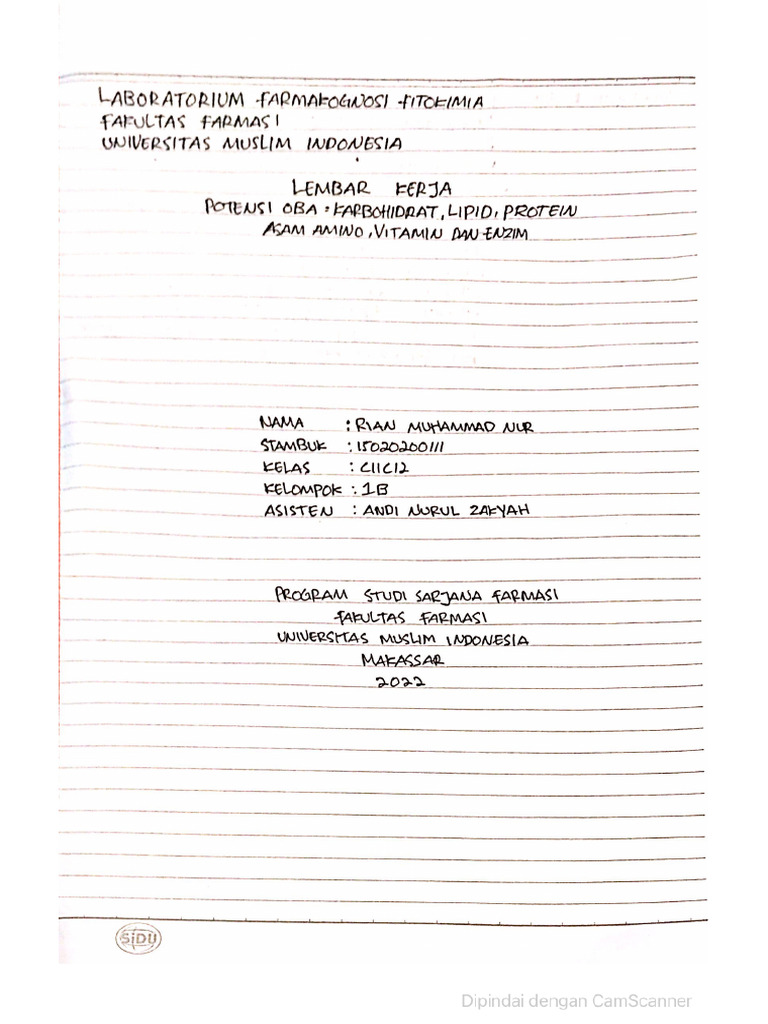 LABORATORIUM FARMAKOGNOSI FITOKIMIA
FAKULTAS FARMASI
UNIVERSITAS MUSLIM INDONESIA
LEMBAR KERJA
POTENSI OBA : KARBOHIDRAT, LIPID, PROTEIN
ASAM AMINO, VITAMIN DAN ENZIM
NAMA : RIAN MUHAMMAD NUR
STAMBUK : 15020200111
KELAS : C11C12
KELOMPOK : 1B
ASISTEN : ANDI NURUL ZAKYAH
PROGRAM STUDI SARJANA FARMASI
FAKULTAS FARMASI
UNIVERSITAS MUSLIM INDONESIA
MAKASSAR
2022
SiDU
Dipindai dengan CamScanner